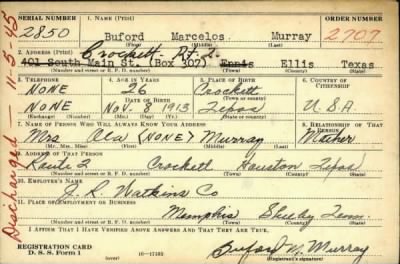 SERIAL NUMBER 1. NAME (Print) ORDER NUMBER
2850 Buford Marcelos Murray 2707
(First) (Middle) (Last)
2. ADDRESS (Print) Crockett Rt. 2.
401 South Main St. (Box 307) Ennis Ellis Texas
(Number and street or R. F. D. number) (Town) (County) (State)
3. TELEPHONE 4. AGE IN YEARS 5. PLACE OF BIRTH 6. COUNTRY OF CITIZENSHIP
NONE 26 Crockett
DATE OF BIRTH (Town or county)
NONE Nov. 8, 1913 Texas U.S.A
(Exchange) (Number) (Mo.) (Day) (Yr.) (State or country)
7. NAME OF PERSON WHO WILL ALWAYS KNOW YOUR ADDRESS 8. RELATIONSHIP OF THAT PERSON
Mrs Ola (NONE) Murray Mother
(Mr., Mrs., Miss) (First) (Middle) (Last)
9. ADDRESS OF THAT PERSON
Route 2 Crockett Houston Texas
(Number and street or R. F. D. number) (Town) (County) (State)
10. EMPLOYER'S NAME
J. R. Watkins Co
11. PLACE OF EMPLOYMENT OR BUSINESS
Memphis Shelby Tenn.
(Number and street or R. F. D. number) (Town) (County) (State)
I AFFIRM THAT I HAVE VERIFIED ABOVE ANSWERS AND THAT THEY ARE TRUE.
REGISTRATION CARD
D. S. S. Form 1 16-17105 Buford M. Murray
(Registrant's signature)
Discharged - 11-5-45